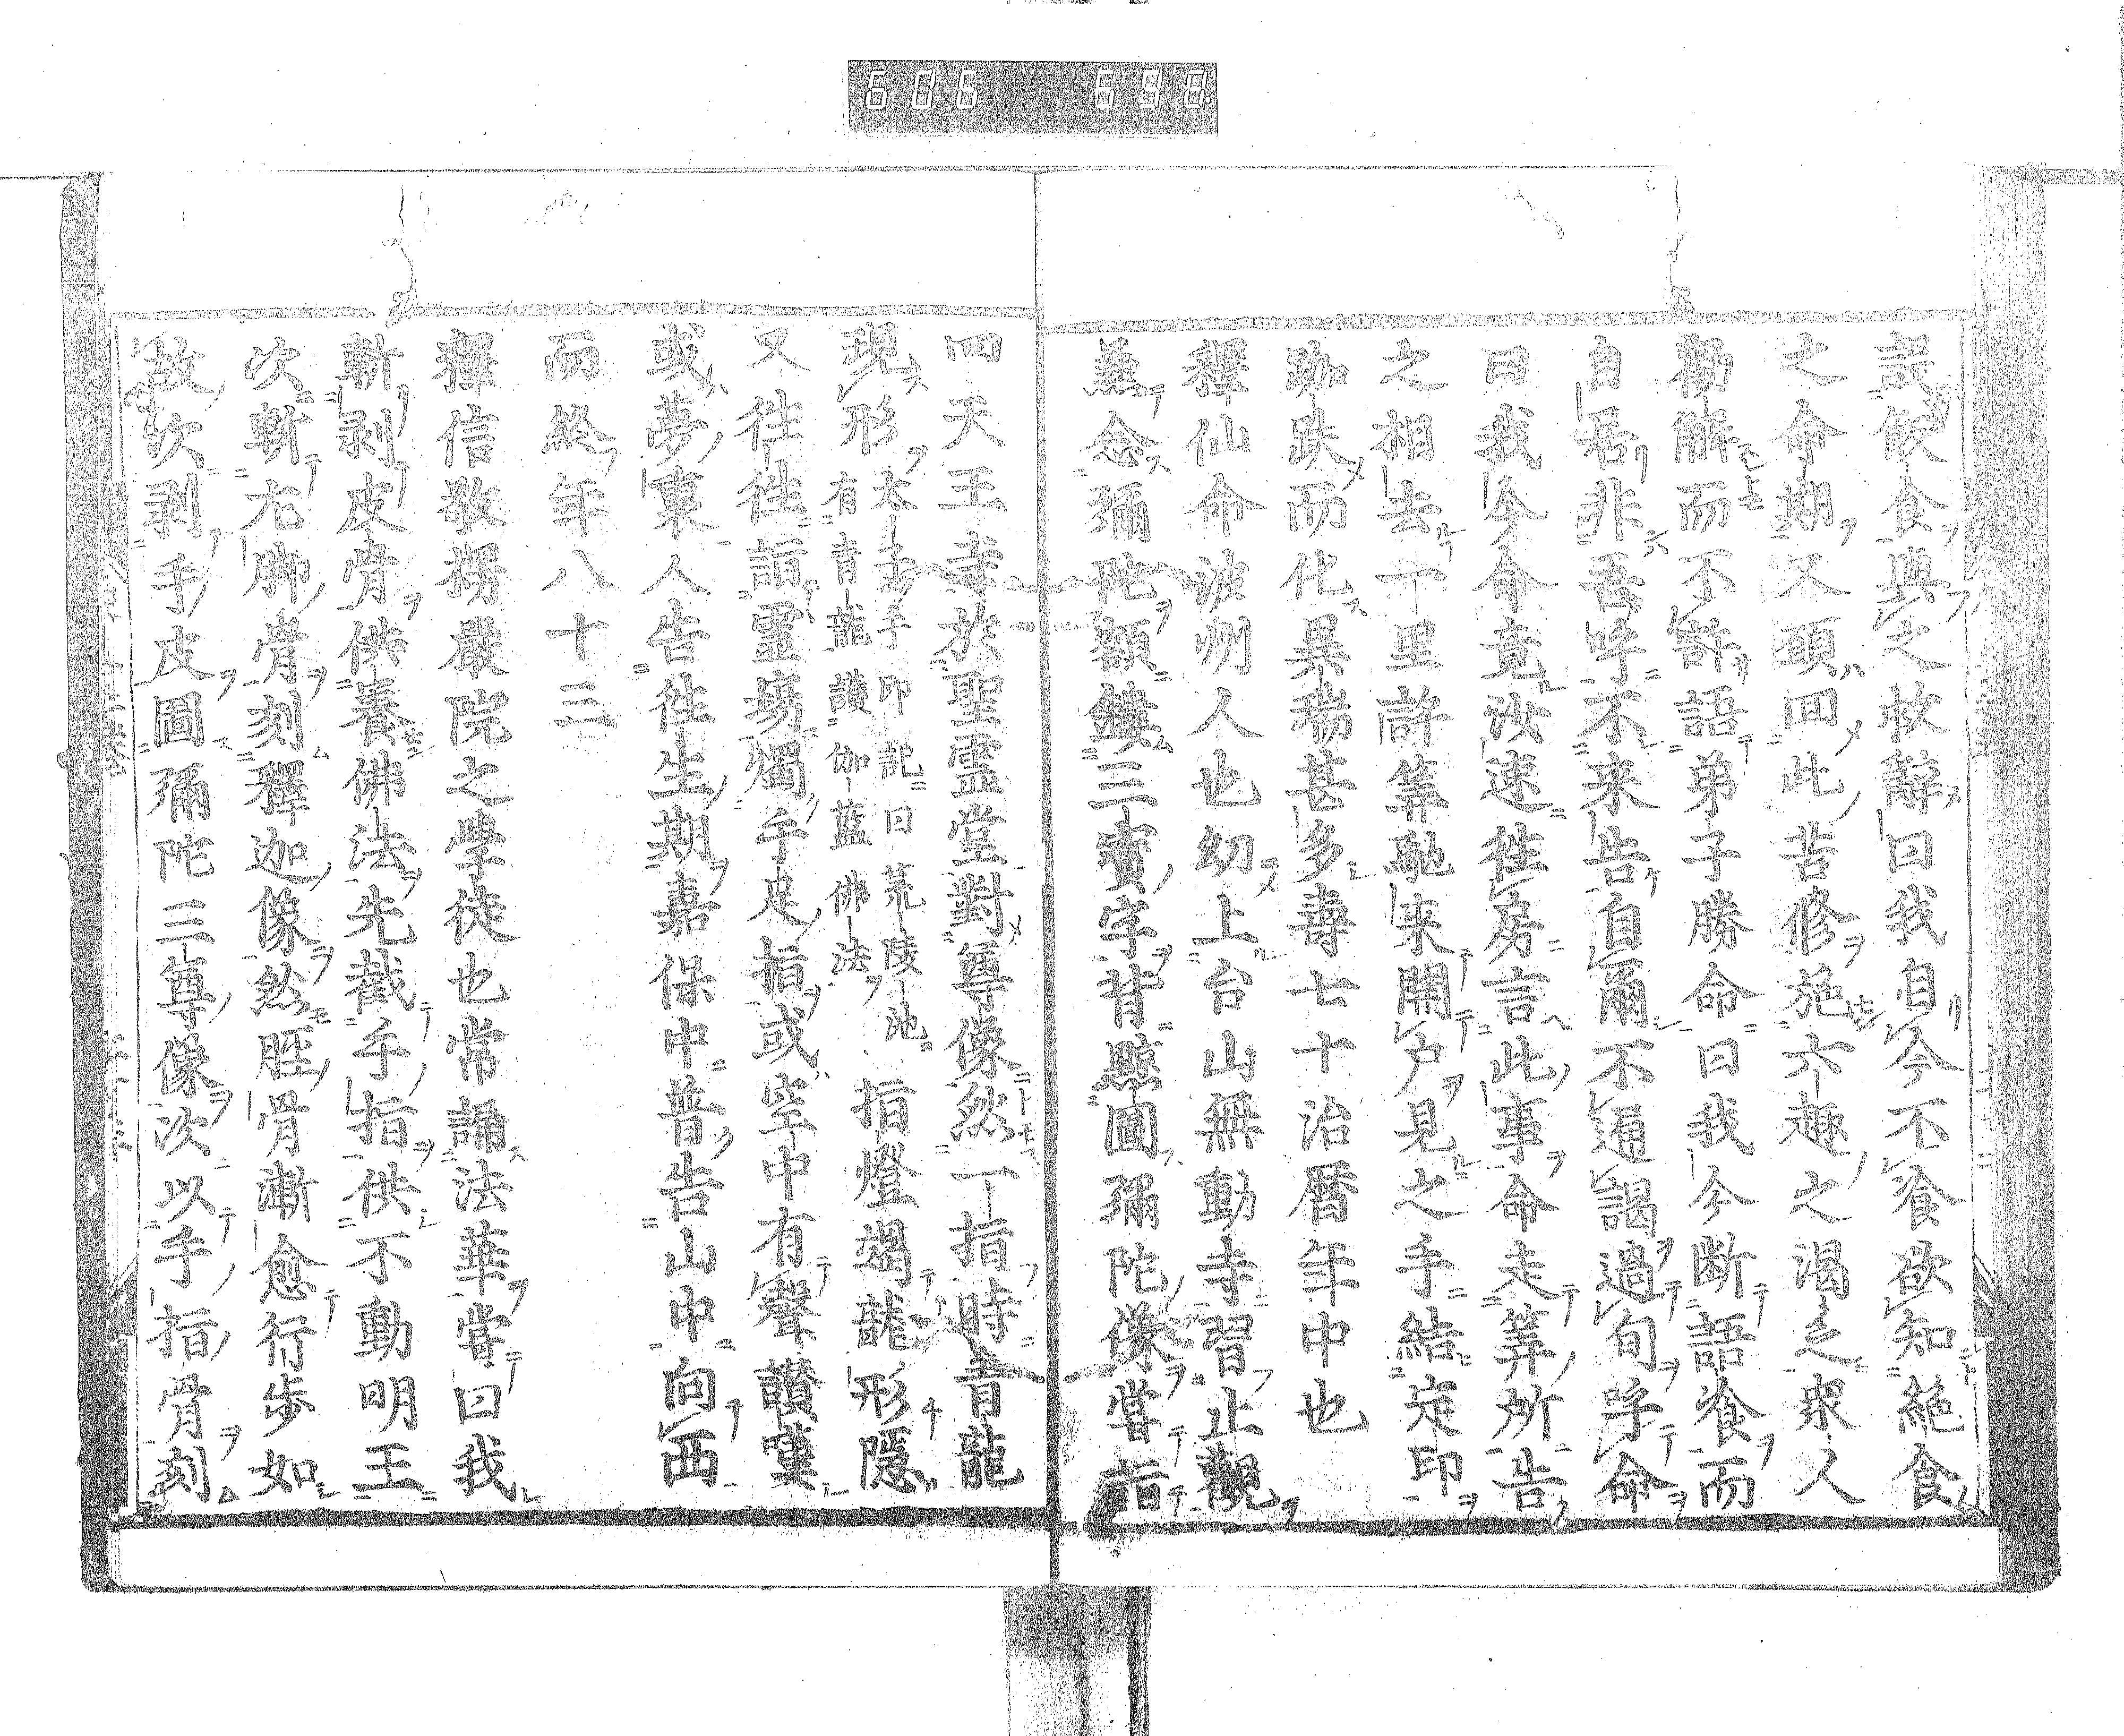 606 698
設飲食與之救辭曰我自今不飡欲知絕食
之命期又願回此苦修施六趣之渴乏衆人
勸解而不許語弟子勝命曰我今断語飡而
自居非吾呼不来告自爾不通謁過旬呼命
曰我今命竟汝速往房言此事命走筭所告
之相去一里許筭馳来開户見之手結定印
跏趺而化異瑞甚多壽七十治暦年中也
釋仙命波州人也幼上台山無動寺習止觀
兼念彌陀額鏤三寶字背黥圖彌陀像嘗詣
四天王寺於聖霊堂對尊像然一指時青龍
現形太子手印記曰荒陵池有青龍護伽藍佛法指燈竭龍形隱
又往往詣霊塲燭手足指或空中有聲讃嘆
或夢裏人告徃生期嘉保中普告山中向西
而終年八十三
釋信敬楞嚴院之學徒也常誦法華嘗曰我
斬剥皮骨供養佛法先截手指供不動明王
次斬尢脚骨刻釋迦像然脛骨漸愈行歩如
故次剥手皮圖彌陀三尊像次以手指骨刻